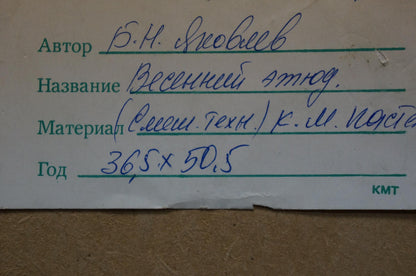 Автор Б.Н. Яковлев
Название Весенний этюд.
Материал (Смеш. техн.) К. М. пасте
Год 36,5 x 50,5
КМТ